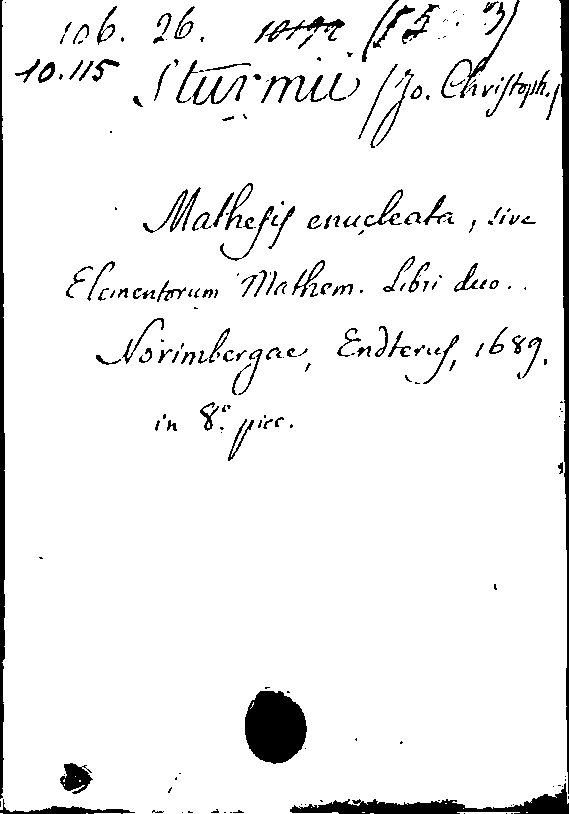 106. 26.
10.115 Sturmii (Jo. Christoph.)
Mathesis enucleata, sive
Elementorum Mathem. Libri duo..
Norimbergae, Endterus, 1689.
in 8.° picc.